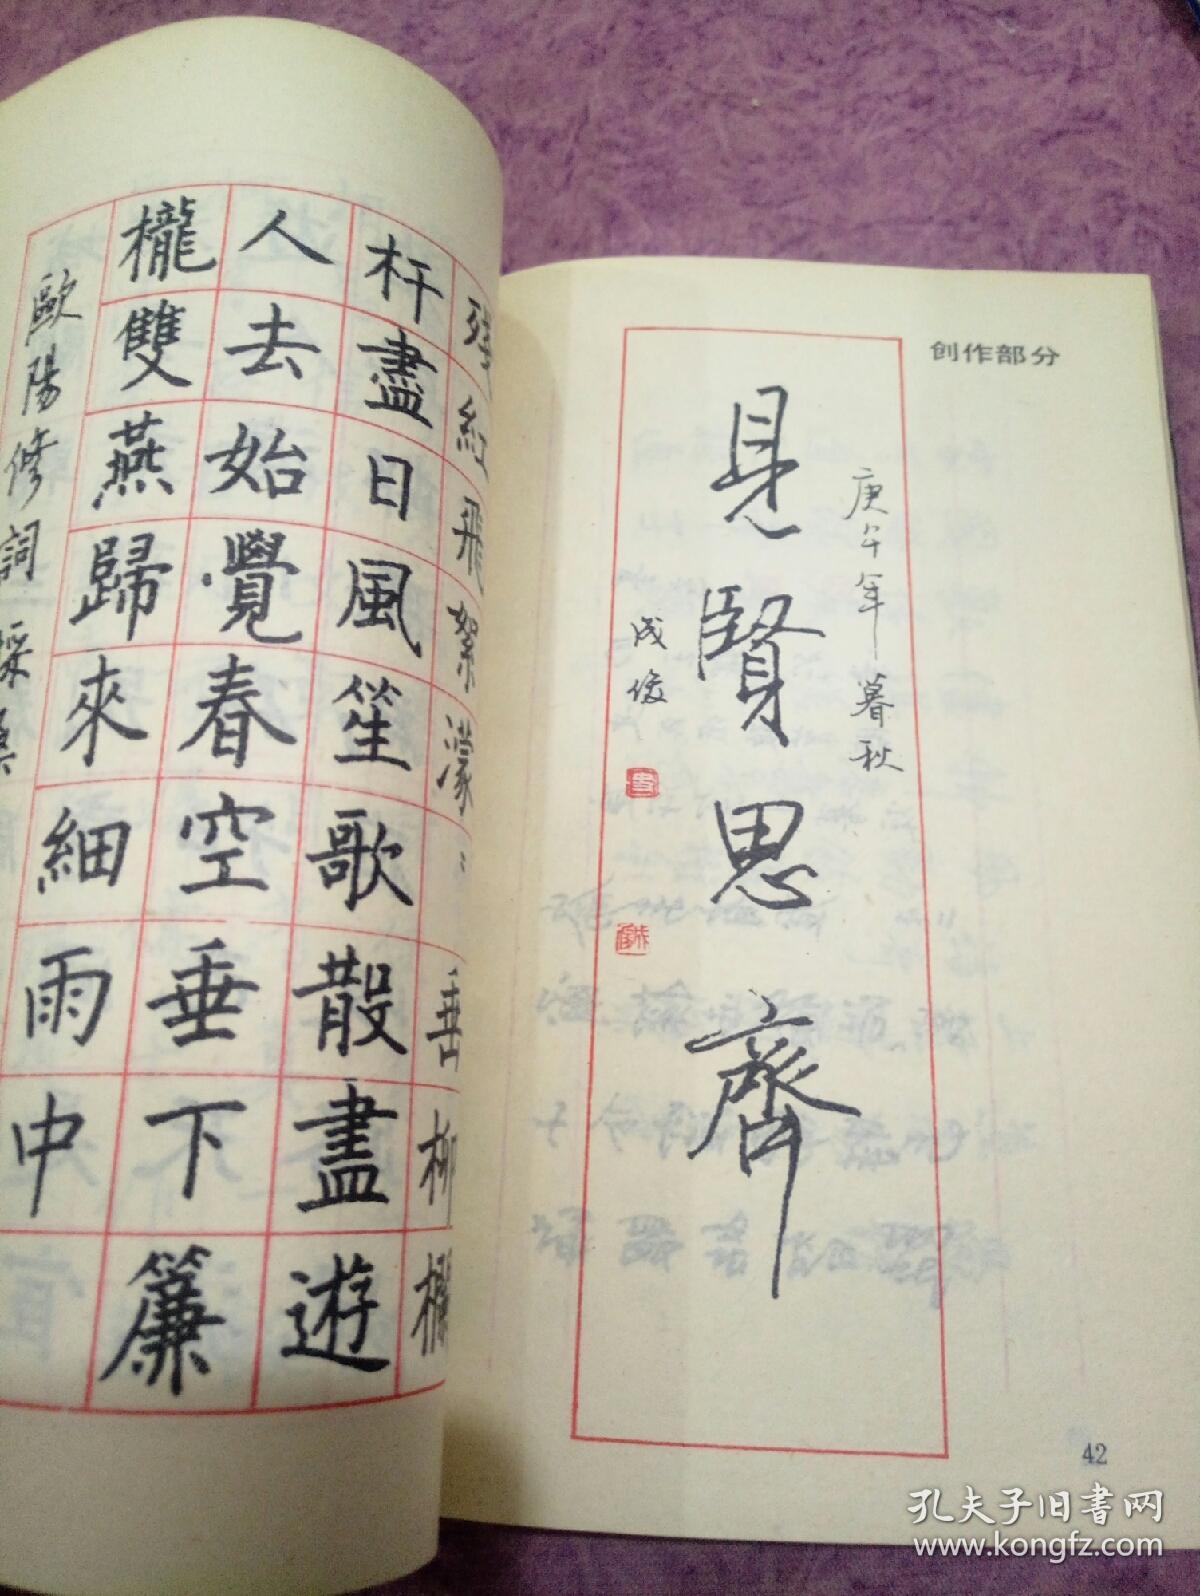 残紅飛絮濛垂柳欄
杆盡日風笙歌散盡遊
人去始覺春空垂下簾
櫳雙燕歸來細雨中
歐陽修詞採桑
创作部分
庚午年暮秋
見賢思齊
成俊
42
孔夫子旧书网
www.kongfz.com